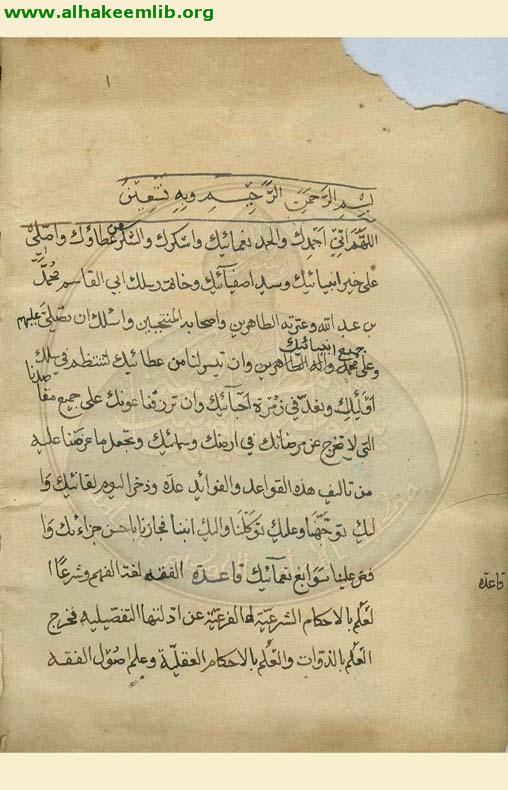 www.alhakeemlib.org
١
بسم الرحمن الرحيم وبه نستعين
اللهم اني احمدك والحمد نعمائك واشكرك والشكر من عطاؤك واصلى
على خير انبيائك وسيد اصفيائك وخاتم رسلك ابي القاسم محمد
بن عبد الله وعترته الطاهرين واصحابه المنتجبين واسئلك ان تصلى عليهم
جميع انبيائك
وعلى محمد وآله الطاهرين وان تيسر لنا من عطائك لننتظم في سلك
اوليائك ونعد في زمرة احبائك وان ترزقنا عونك على جميع مقاصدنا
التي لا تخرج عن مرضاتك في ارضك وسمائك وتجعل ما عرضنا عليه
من تاليف هذه القواعد والفوائد عدة وذخرا ليوم لقائك وا
ليك توجهنا وعليك توكلنا واليك انبنا فجازنا باحسن جزاءك وا
فض علينا سوابغ نعمائك قاعدة الفقه لغة الفهم وشرعا ا
قاعده
لعلم بالاحكام الشرعية الفرعية عن ادلتها التفصيلية فخرج
العلم بالذوات والعلم بالاحكام العقلية وعلم اصول الفقه